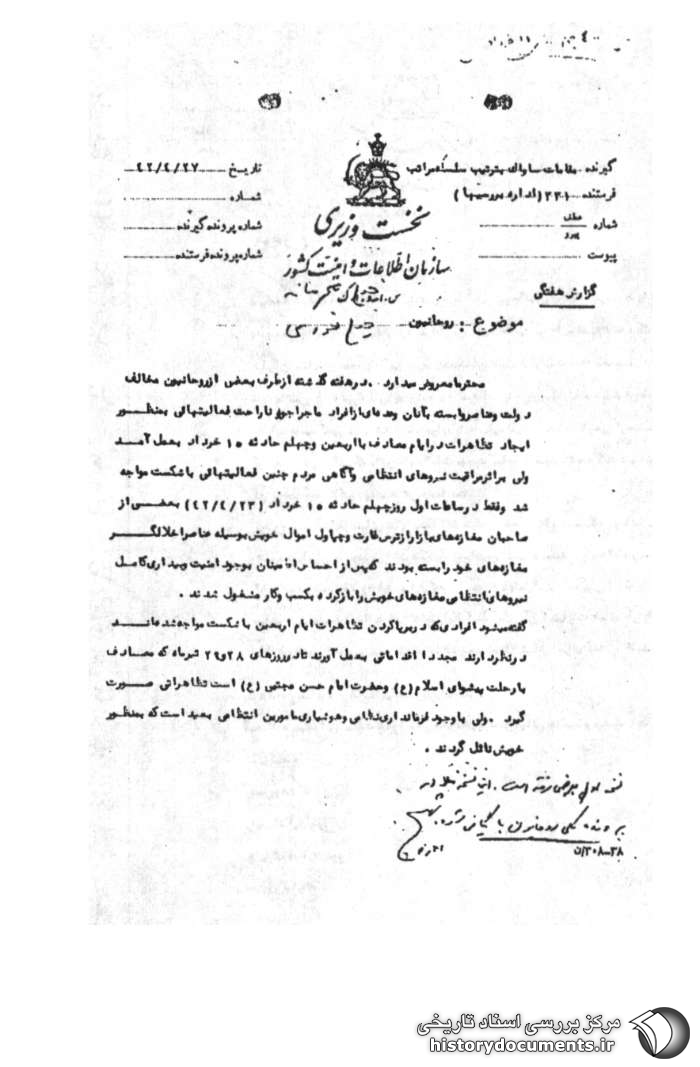 گیرنده مقامات ساواک بترتیب سلسله مراتب
فرستنده ۳۳۱ (اداره بررسیها)
شماره عطف پیرو
پیوست
گزارش هفتگی
نخست وزیری
سازمان اطلاعات و امنیت کشور
تاریخ ۴۲/۴/۲۷
شماره
شماره پرونده گیرنده
شماره پرونده فرستنده
موضوع: روحانیون
محترما معروض میدارد. در هفته گذشته از طرف بعضی از روحانیون مخالف
دولت و عناصر وابسته بآنان و عده‌ای از افراد ماجراجو و ناراحت فعالیتهائی بمنظور
ایجاد تظاهرات در ایام مصادف با اربعین و چهلم حادثه ۱۵ خرداد بعمل آمد
ولی براثر مراقبت نیروهای انتظامی و آگاهی مردم چنین فعالیتهائی با شکست مواجه
شد وفقط در ساعات اول روز چهلم حادثه ۱۵ خرداد (۴۲/۴/۲۳) بعضی از
صاحبان مغازه‌های بازار از ترس غارت و چپاول اموال خویش بوسیله عناصر اخلالگر
مغازه‌های خود را بسته بودند که پس از احساس اطمینان بوجود امنیت و بیداری کامل
نیروهای انتظامی مغازه‌های خویش را باز کرده بکسب و کار مشغول شدند.
گفته میشود افرادی که در برپا کردن تظاهرات ایام اربعین با شکست مواجه شده‌اند
در نظر دارند مجددا اقداماتی بعمل آورند تا در روزهای ۲۸ و ۲۹ تیرماه که مصادف
با رحلت پیشوای اسلام (ع) و حضرت امام حسن مجتبی (ع) است تظاهراتی صورت
گیرد. ولی با وجود فرمانداری نظامی و هوشیاری مامورین انتظامی بعید است که بمنظور
خویش نائل گردند.
نسخه اول بعرض رسیده است. این نسخه
پرونده کلی روحانیون بایگانی شود
۳۸-۳۰۸/ن
مرکز بررسی اسناد تاریخی
historydocuments.ir